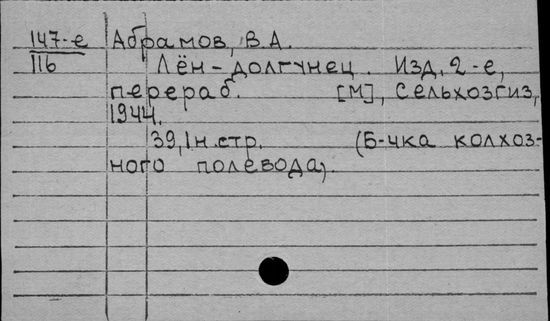 147-е Абрамов, В.А.
116 Лён-долгунец. Изд. 2-е,
перераб. [М], Сельхозгиз,
1944.
39,1н.стр. (Б-чка колхоз-
ного полевода).